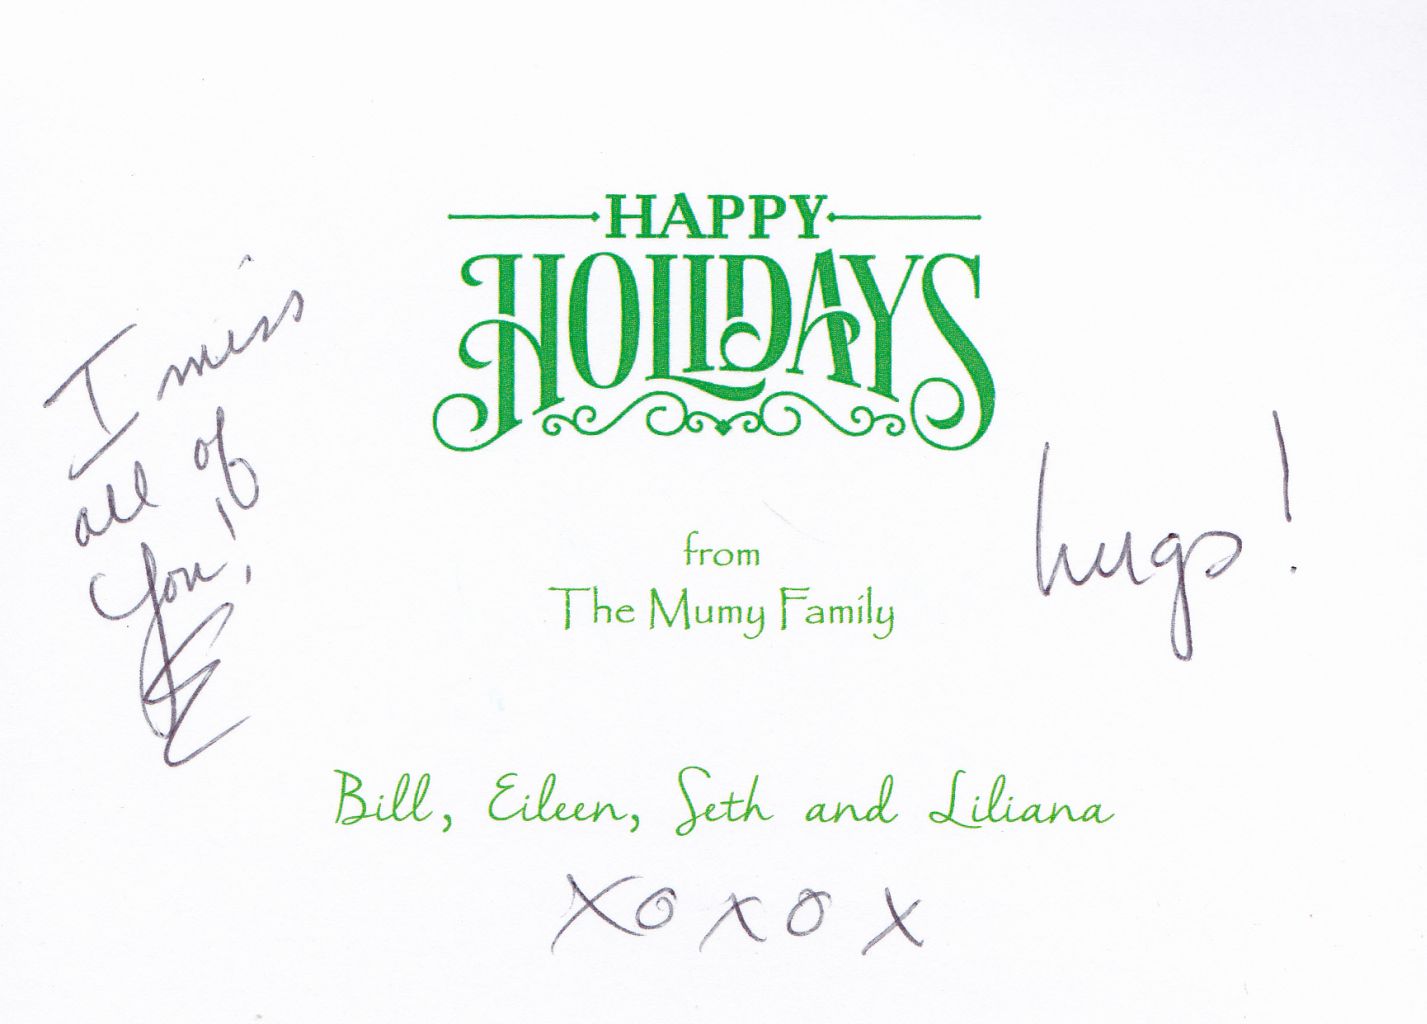 HAPPY
HOLIDAYS
I miss
all of
you!
hugs!
from
The Mumy Family
Bill, Eileen, Seth and Liliana
XOXOX